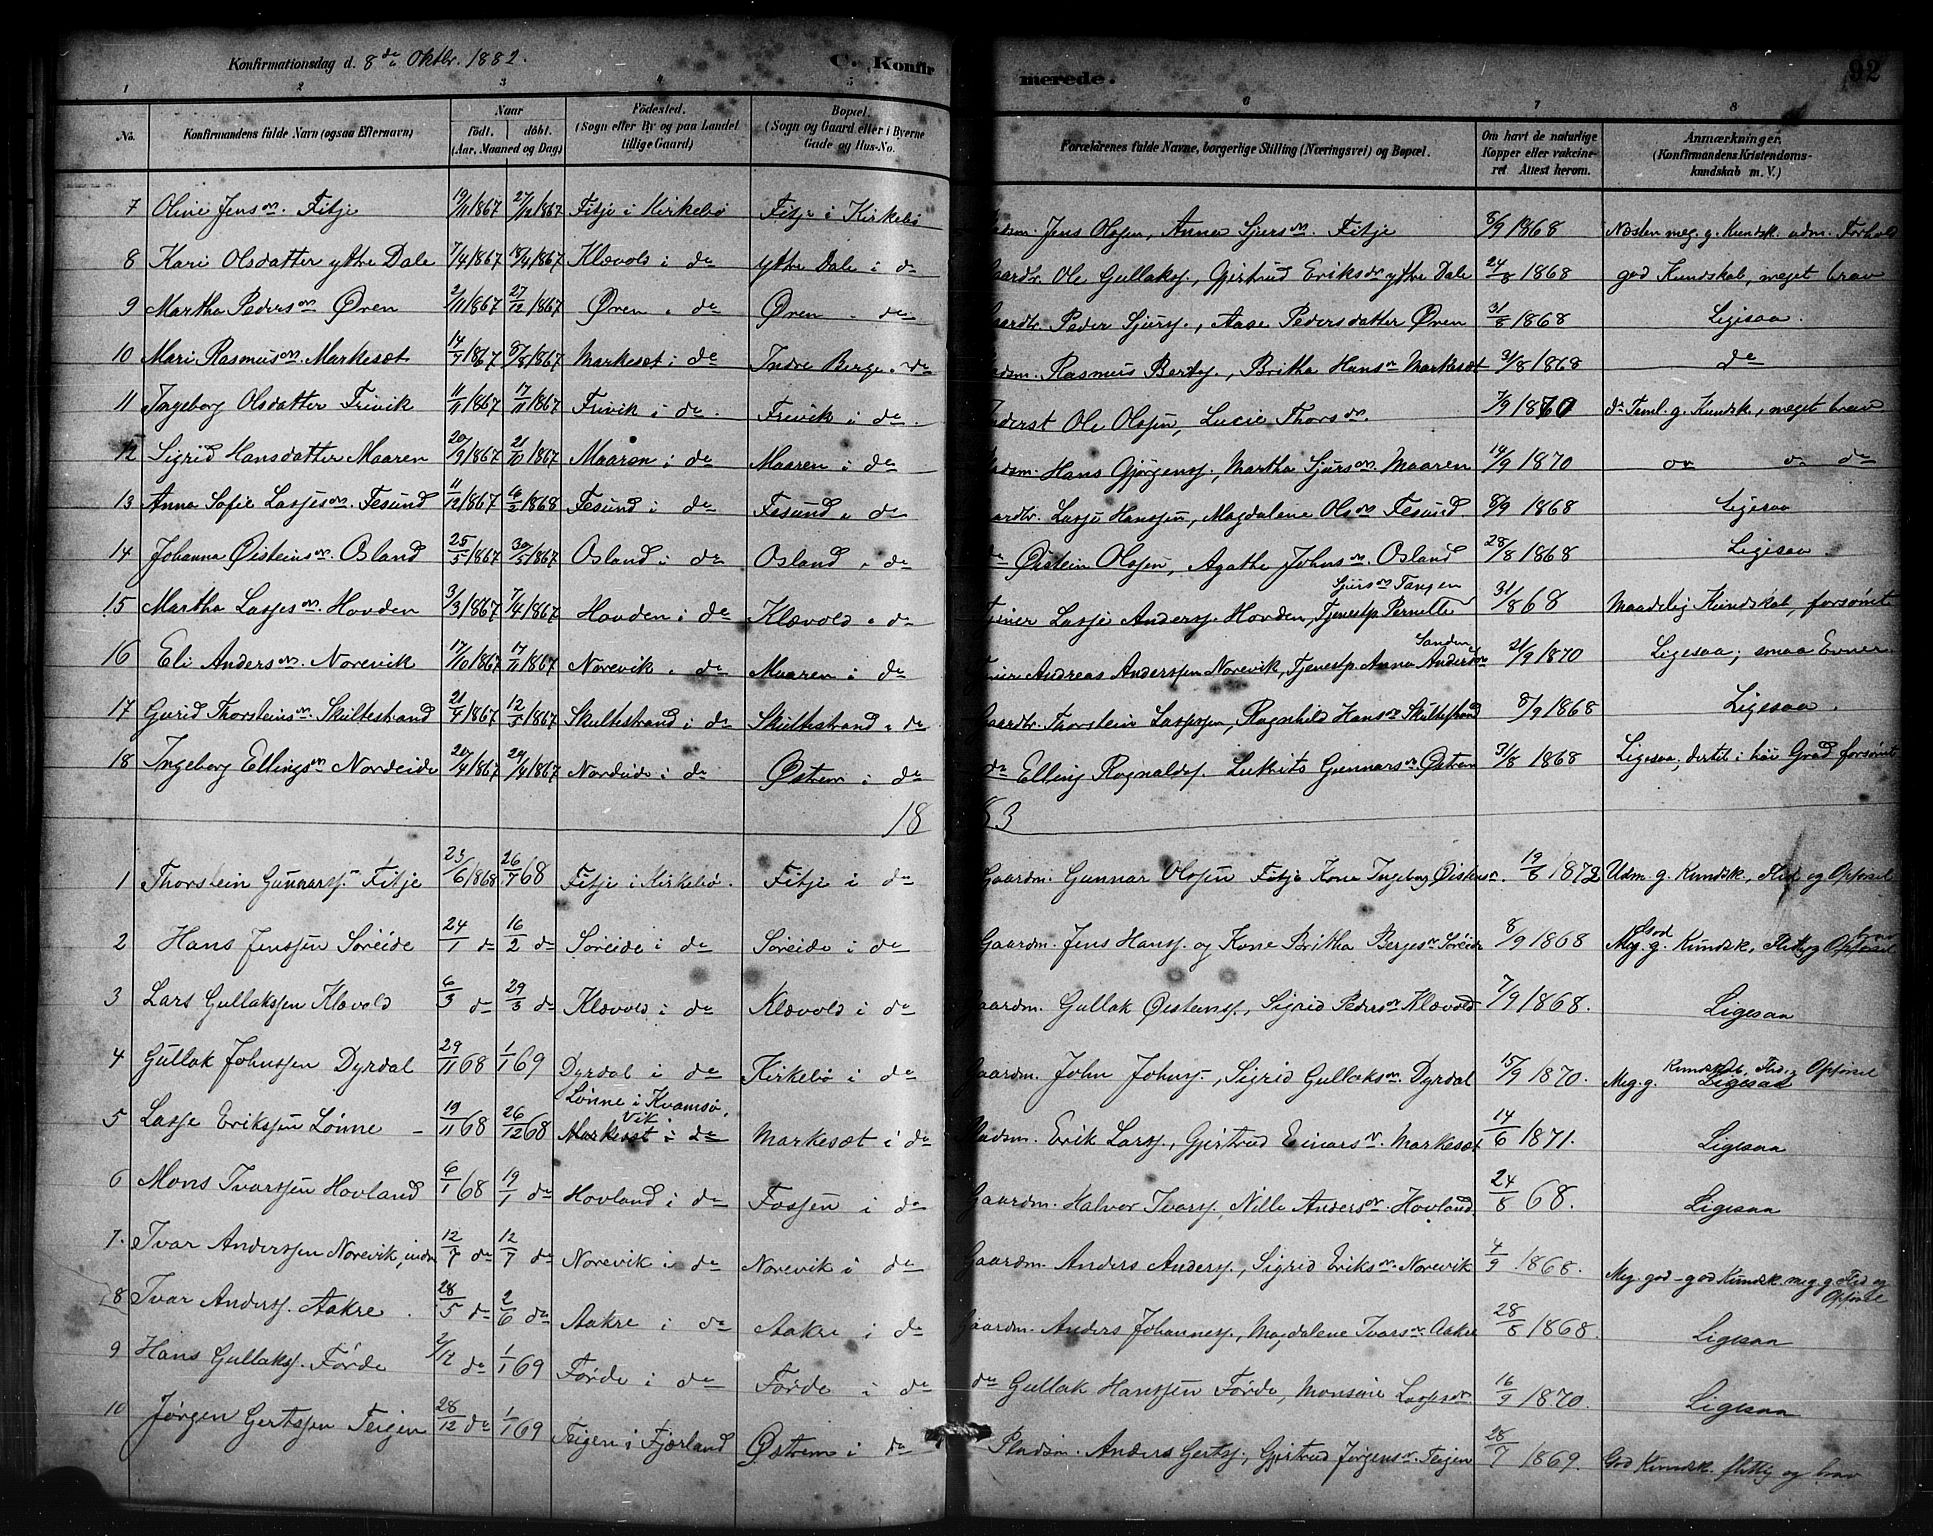 Konfirmationsdag d. 8de Oktbr. 1882.
C. Konfirmerede.
92
1 2 3 4 5 6 7 8
No.
Konfirmandens fulde Navn (ogsaa Efternavn)
Naar
født. døbt.
(Aar, Maaned og Dag)
Fødested.
(Sogn eller By og paa Landet tillige Gaard)
Bopæl
(Sogn og Gaard eller i Byerne Gade og Hus-No.
Forældrenes fulde Navne, borgerlige Stilling (Næringsvei) og Bopæl.
Om havt de naturlige Kopper eller vakcineret Attest herom.
Anmærkninger.
(Konfirmandens Kristendomskundskab m. V.)
7 Oline Jensdr. Fitje 19/11 1867 27/12 1867 Fitje i Kirkebø Fitje i Kirkebø Pladsm. Jens Olsen, Anna Sjursdr. Fitje 8/9 1868 Næsten meg. g. Kundsk. udm. Forhold
8 Kari Olsdatter ytre Dale 7/4 1867 18/4 1867 Klævold i do ytre Dale i do Gaardbr. Ole Gullakss, Gjertrud Eriksdr ytre Dale 24/8 1868 god Kundskab, meget brav
9 Martha Pedersdr Øren 2/11 1867 27/12 1867 Øren " do Øren " do Gaardbr. Peder Sjurss., Aase Pedersdatter Øren 3/8 1868 Ligesaa.
10 Mari Rasmusdr. Markesæt 14/7 1867 8/8 1867 Markesæt i do Indre Berge " do Pladsm. Rasmus Berths., Britha Hansdr Markesæt 3/8 1868 do
11 Ingeborg Olsdatter Trivik 11/11 1867 17/11 1867 Trivik i do. Trivik i do. Inderst Ole Olsen, Lucie Thorsdr. 7/9 1870 do Teml. g. Kundsk., meget brav
12 Sigrid Hansdatter Maaren 20/9 1867 21/10 1867 Maaren i do Maaren i do Pladsm. Hans Gjørgenss., Martha Sjursdr Maaren 14/9 1870 do do do
13 Anna Sofie Lassesdr. Tesund 11/12 1867 6/2 1868 Tesund i do Tesund " do Gaardbr. Lasse Hanssen, Magdalene Olsdr Tesund 8/9 1868 Ligesaa
14 Johanna Øisteinsdr. Osland 25/5 1867 30/5 1867 Osland i do Osland " do do Øistein Olsen, Agathe Johnsdr. Osland 28/8 1868 Ligesaa.
15 Martha Lassesdr. Hovden 3/3 1867 7/4 1867 Hovden i do Klævold " do Tjener Lasse Anderss. Hovden, Tjenestp. Pernille Sjursdr Tangen 31/8 68 Maadelig Kundskab, forsømt
16 Eli Andersdr. Norevik 17/10 1867 17/11 1867 Norevik " do Maaren i do Tjener Andreas Anderssen Norevik, Tjenestp. Anna Andersdr Sanden 21/9 1870 Ligesaa; smaa Evner
17 Gurid Thorsteinsdr. Skiltestrand 21/4 1867 12/5 1867 Skiltestrand i do Skiltestrand " do Gaardbr. Thorstein Lassesen, Ragnhild Hansdr Skiltestrand 8/9 1868 Ligesaa.
18 Ingeborg Ellingsdr Nordeide 20/4 1867 24/4 1867 Nordeide i do Østrem i do do Elling Ragnalds. Lukrits Gunnarsdr. Østrem 3/8 1868 Ligesaa; dertil i høi Grad forsømt
1883
1 Thorstein Gunnarss. Fitje 23/6 1868 26/7 68 Fitje i Kirkebø. Fitje i do Gaardm. Gunnar Olsen Fitje Kone Ingeborg Øistensdr. 19/8 1872 Udm. g. Kundsk., Flid og Opførsel
2 Hans Jenssen Søreide 24/1 do 16/2 do Søreide i do Søreide i do Gaardm. Jens Hanss. og Kone Britha Bergesdr Søreide 8/9 1868 Meg. g. Kundsk., Flid og Opførsel
3 Lars Gullakssen Klævold 6/3 do 29/3 do Klævold i do Klævold i do Gaardm. Gullak Øisteinss., Sigrid Pedersdr Klævold 7/9 1868. Ligesaa
4 Gullak Johnssen Dyrdal 29/11 68 1/1 69 Dyrdal i do Kirkebø i do Gaardm. John Johnss., Sigrid Gullaksdr. Dyrdal 15/9 1870. Meg. g. Kundskab, Flid og Opførsel Ligesaa
5 Lasse Erikssen Lønne - 19/11 68 26/12 68 Lønne i Kvamsø, Vik. Markesæt i do Markesæt i do Pladsm. Erik Larss., Gjertrud Einarsdr. Markesæt 14/6 1871. Ligesaa
6 Mons Ivarssen Hovland 6/1 68 19/1 do Hovland i do Fossen i do Gaardm. Halvor Ivarss., Nille Andersdr. Hovland. 24/8 68. Ligesaa
7. Ivar Anderssen Norevik, indre 12/7 do 12/7 do Norevik i do Norevik i do Gaardm. Anders Anderss., Sigrid Eriksdr. Norevik 4/9 1868. Meg. god - god Kundsk. meg. g. Flid og Opførsel
8 Ivar Anderss. Aakre. 28/5 do 2/6 do Aakre i do Aakre i do Gaardm. Anders Johanness., Magdalene Ivarsdr. Aakre 28/8 1868. Ligesaa
9 Hans Gullakss. Førde 2/12 do 1/1 69 Førde i do Førde i do do Gullak Hanssen Førde, Monsine Lassesdr. 16/9 1870. Ligesaa
10 Jørgen Gertssen Teigen 28/12 do 1/1 69 Teigen i Fjærland Østrem i do Pladsm. Anders Gertss., Gjertrud Jørgensdr. Teigen 28/7 1869. God Kundsk. flittig og brav